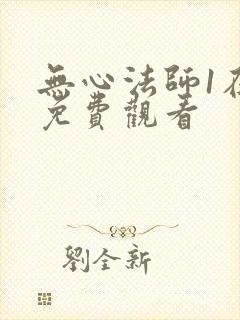 無心法師1在
免費觀看
劉全新